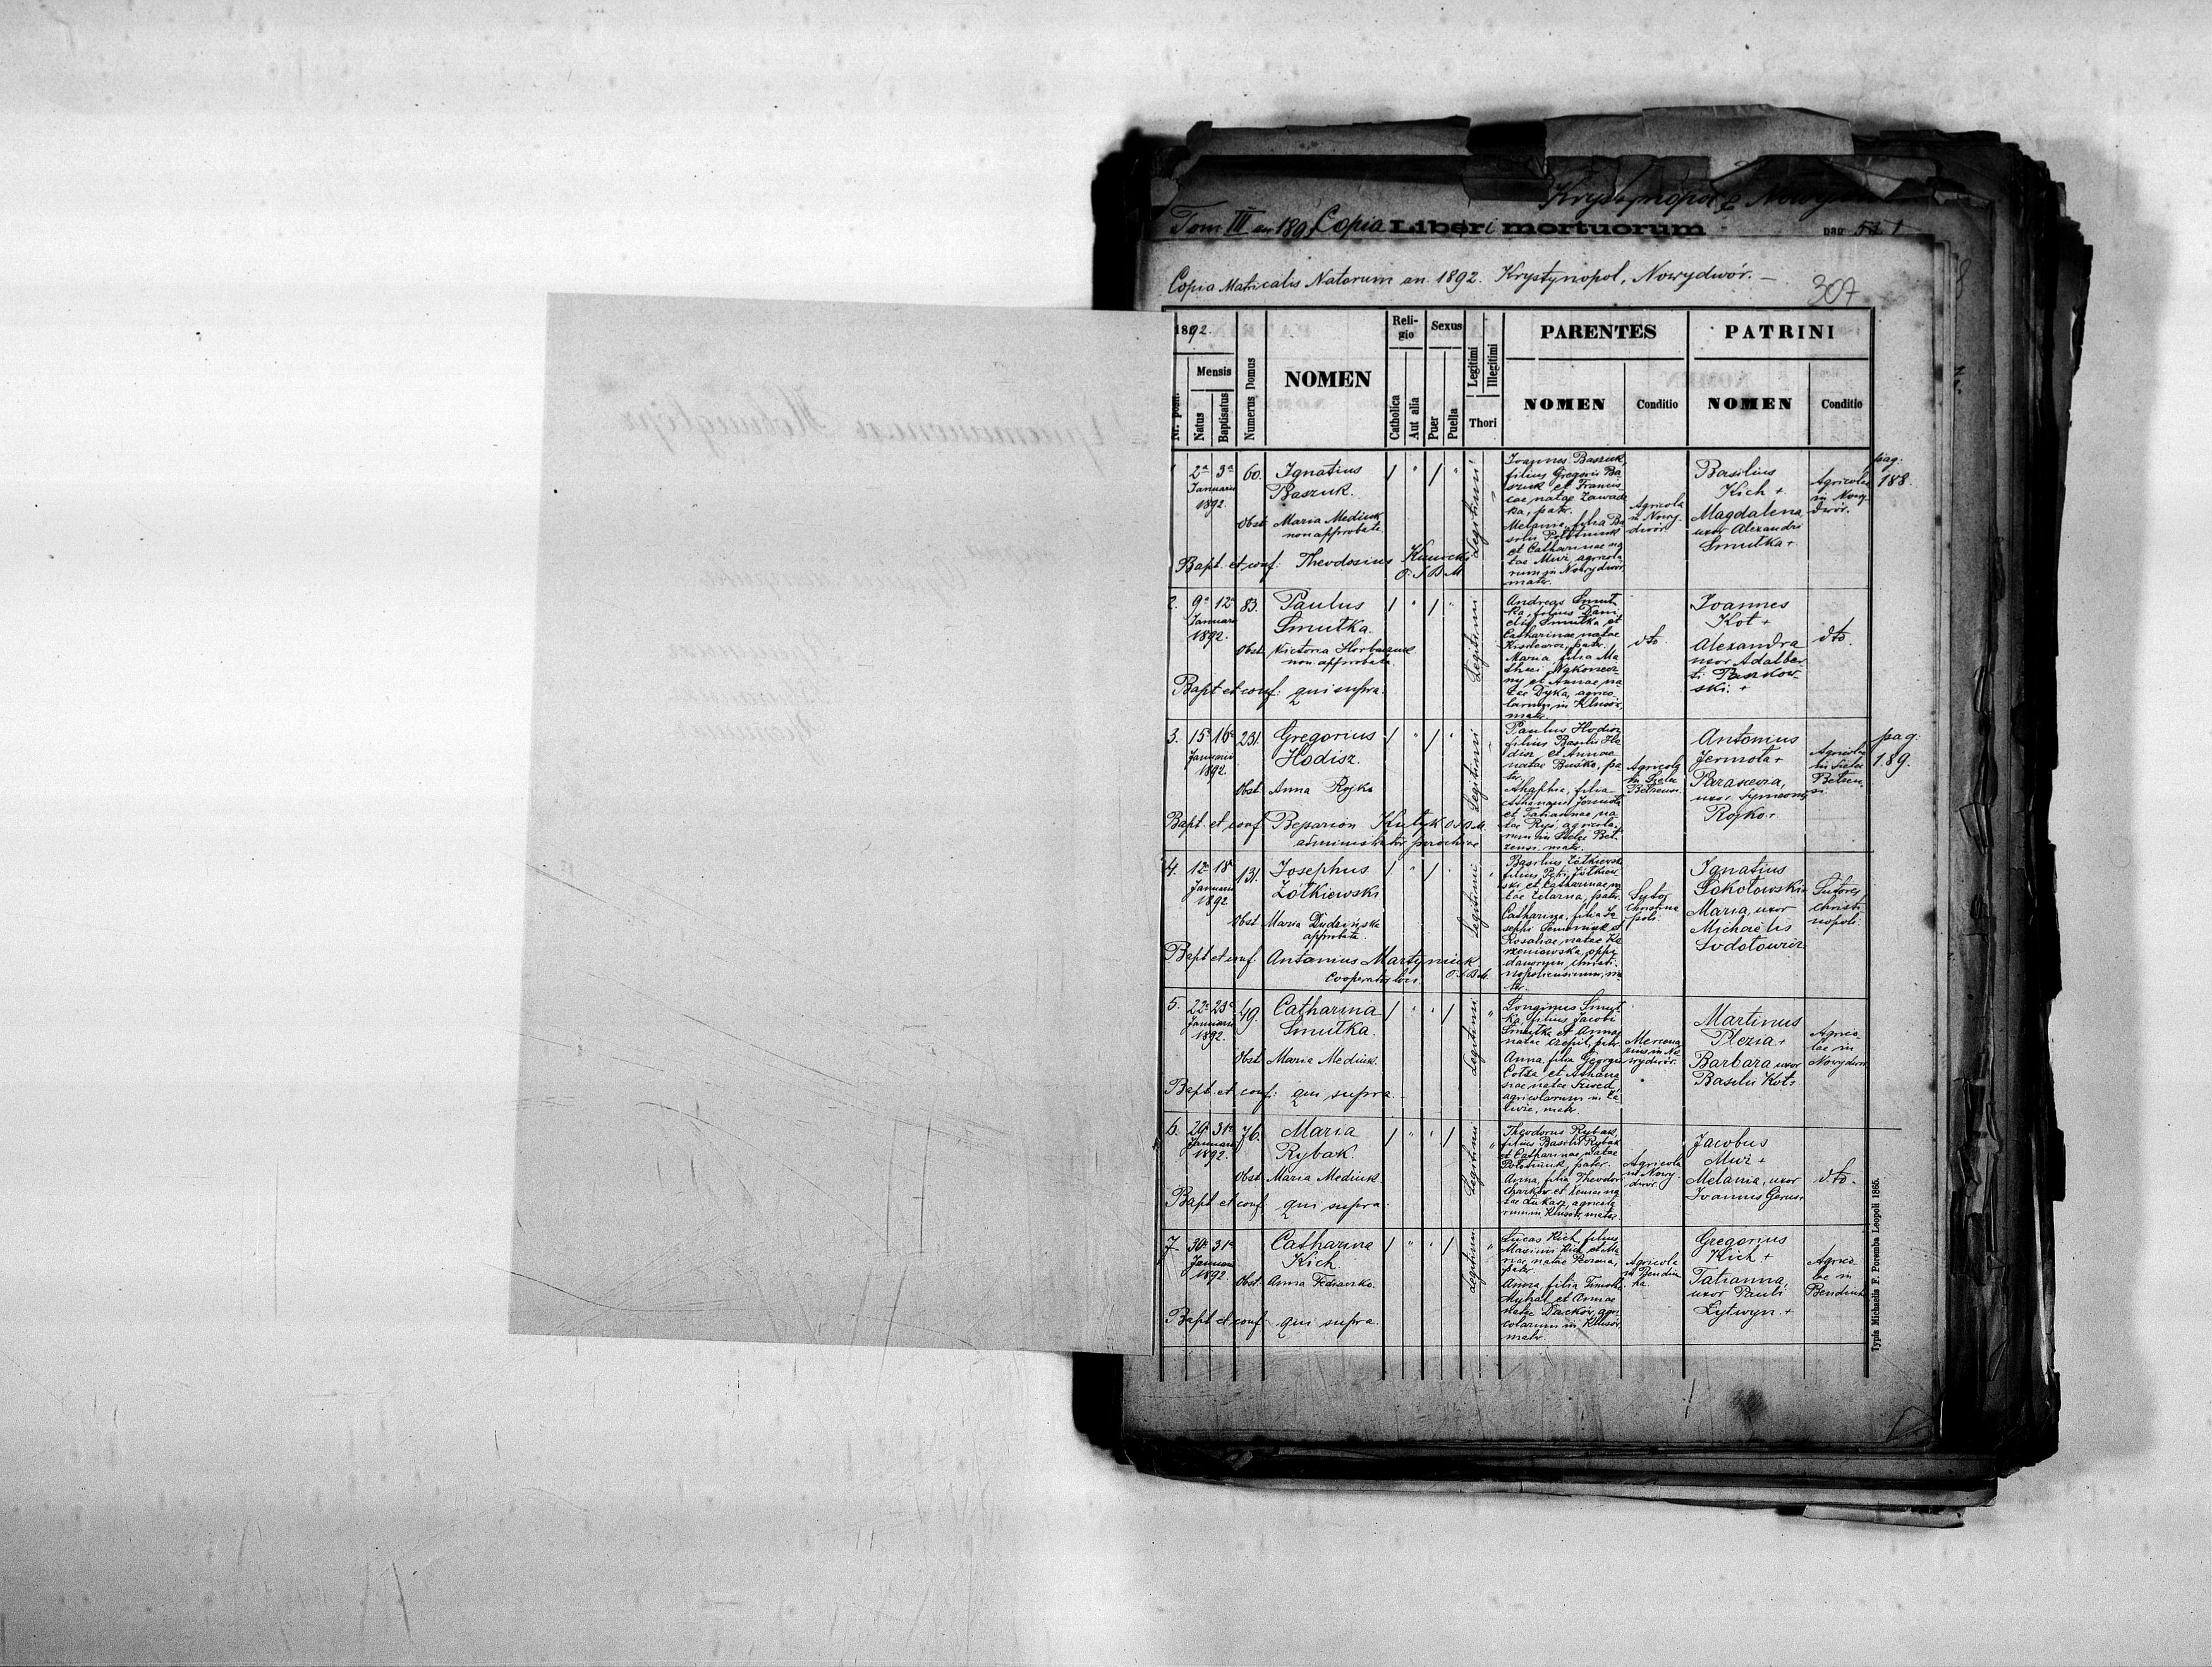 Krystynopol
Tom III an 189 Copia Liberi mortuorum pag
Copia Matricalis Natorum an. 1892. Krystynopol, Nowydwór. —
307
1892.
Mensis
Nr. posit.
Natus
Baptisatus
Numerus Domus
NOMEN
Reli-
gio
Catholica
Aut alia
Sexus
Puer
Puella
Legitimi
Illegitimi
Thori
PARENTES
NOMEN
Conditio
PATRINI
NOMEN
Conditio
pag.
188.
1 2a 3a
Januarii
1892.
60.
Ignatius
Baszuk.
Obst. Maria Mediuk
non approbata
Bapt. et conf: Theodosius
O. S. B. M.
Legitimi
Joannes Baszuk,
filius Gregorii Ba-
szuk et Francis-
cae natae Zawadz-
ka, patr.
Melania, filia Ba-
silii
et Catharinae na-
tae Muź, agricola-
rum in Nowydwór
matr.
Agricola
in Nowy-
dwór.
Basilius
Kich +
Magdalena
uxor Alexandri
Smutka +
Agricolae
in Nowy-
dwór.
2. 9a 12a
Januarii
1892.
83.
Paulus
Smutka.
Obst. Victoria
non approbata
Bapt et conf: qui supra.
Legitimi
Andreas Smut-
ka, filius Dani-
elis Smutka et
Catharinae natae
patr.
Maria, filia Ma-
thaei
et Annae na-
tae Dyka, agrico-
larum in Klusów,
matr.
dto.
Joannes
Kot +
Alexandra
uxor Adalber-
ti
ski. +
dto.
3. 15a 16a
Januarii
1892.
231.
Gregorius
Hodisz.
Obst Anna Rojko
Bapt. et conf O. S. B. M.
administrator parochiae
Legitimi
Paulus Hodisz
filius Basilii Ho-
disz et Annae
natae Busko, pa-
ter.
Ahaphia, filia
Athanasii Jermota
et Tatiannae na-
tae Rys, agricola-
rum in Sielec Beł-
zensi. matr.
Agricola
in Sielec
Antonius
Jermota +
Parascevia,
uxor Symeonis
Rojko +
Agricolae
in Sielec
pag.
189.
4. 12a 18a
Januarii
1892
131.
Josephus
Żółkiewski
Obst Maria Dudzińska
approbata
Bapt et conf. Antonius Martyniuk
Cooperator loci. O. S. B. M.
Legitimi
Basilius Żółkiewski
filius Petri Żółkiew-
ski et Catharinae na-
tae patr.
Catharina, filia Jo-
sephi
Rosaliae natae Ko-
rzeniowska, oppi-
danorum Christi-
nopoliensium, ma-
tr.
Sutor
Christino-
poli.
Ignatius
Sokołowski +
Maria, uxor
Michaelis
Sutores
Christi-
nopoli.
5. 22a 23a
Januarii
1892.
49.
Catharina
Smutka.
Obst Maria Mediuk.
Bapt. et conf: qui supra.
Legitimi
Longinus Smut-
ka, filius Jacobi
Smutka et Annae
natae Czepil, patr.
Anna, filia Georgii
Cotza et Athana-
siae natae Szwed,
agricolarum in
matr.
in No-
wydwór.
Martinus
Plezia +
Barbara uxor
Basilii Kot +
Agrico-
lae in
Nowydwór
6. 29a 31a
Januarii
1892.
76.
Maria
Rybak.
Obst Maria Mediuk.
Bapt et conf. qui supra.
Legitimi
Theodorus Rybak,
filius Basilii Rybak
et Catharinae, natae
pater.
Anna, filia Theodori
et na-
tae Łukacz, agricola-
rum in Klusów, matr.
Agricola
in Nowy-
dwór.
Jacobus
Muź +
Melania, uxor
Joannis Gerus +
dto.
7. 30a 31a
Januarii
1892.
Catharina
Kich.
Obst. Anna Fedianko.
Bapt et conf. qui supra.
Legitimi
Lucas Kich, filius
Maximi Kich et Ma-
riae, natae
patr.
Anna, filia Timothei
Myhal et Annae
natae agri-
colarum in Klusów,
matr.
Agricola
in Bendiu-
ha.
Gregorius
Kich +
Tatianna,
uxor Pauli
Lytwyn. +
Agrico-
lae in
Bendiuha
Typis Michaelis F. Poremba Leopoli 1865.